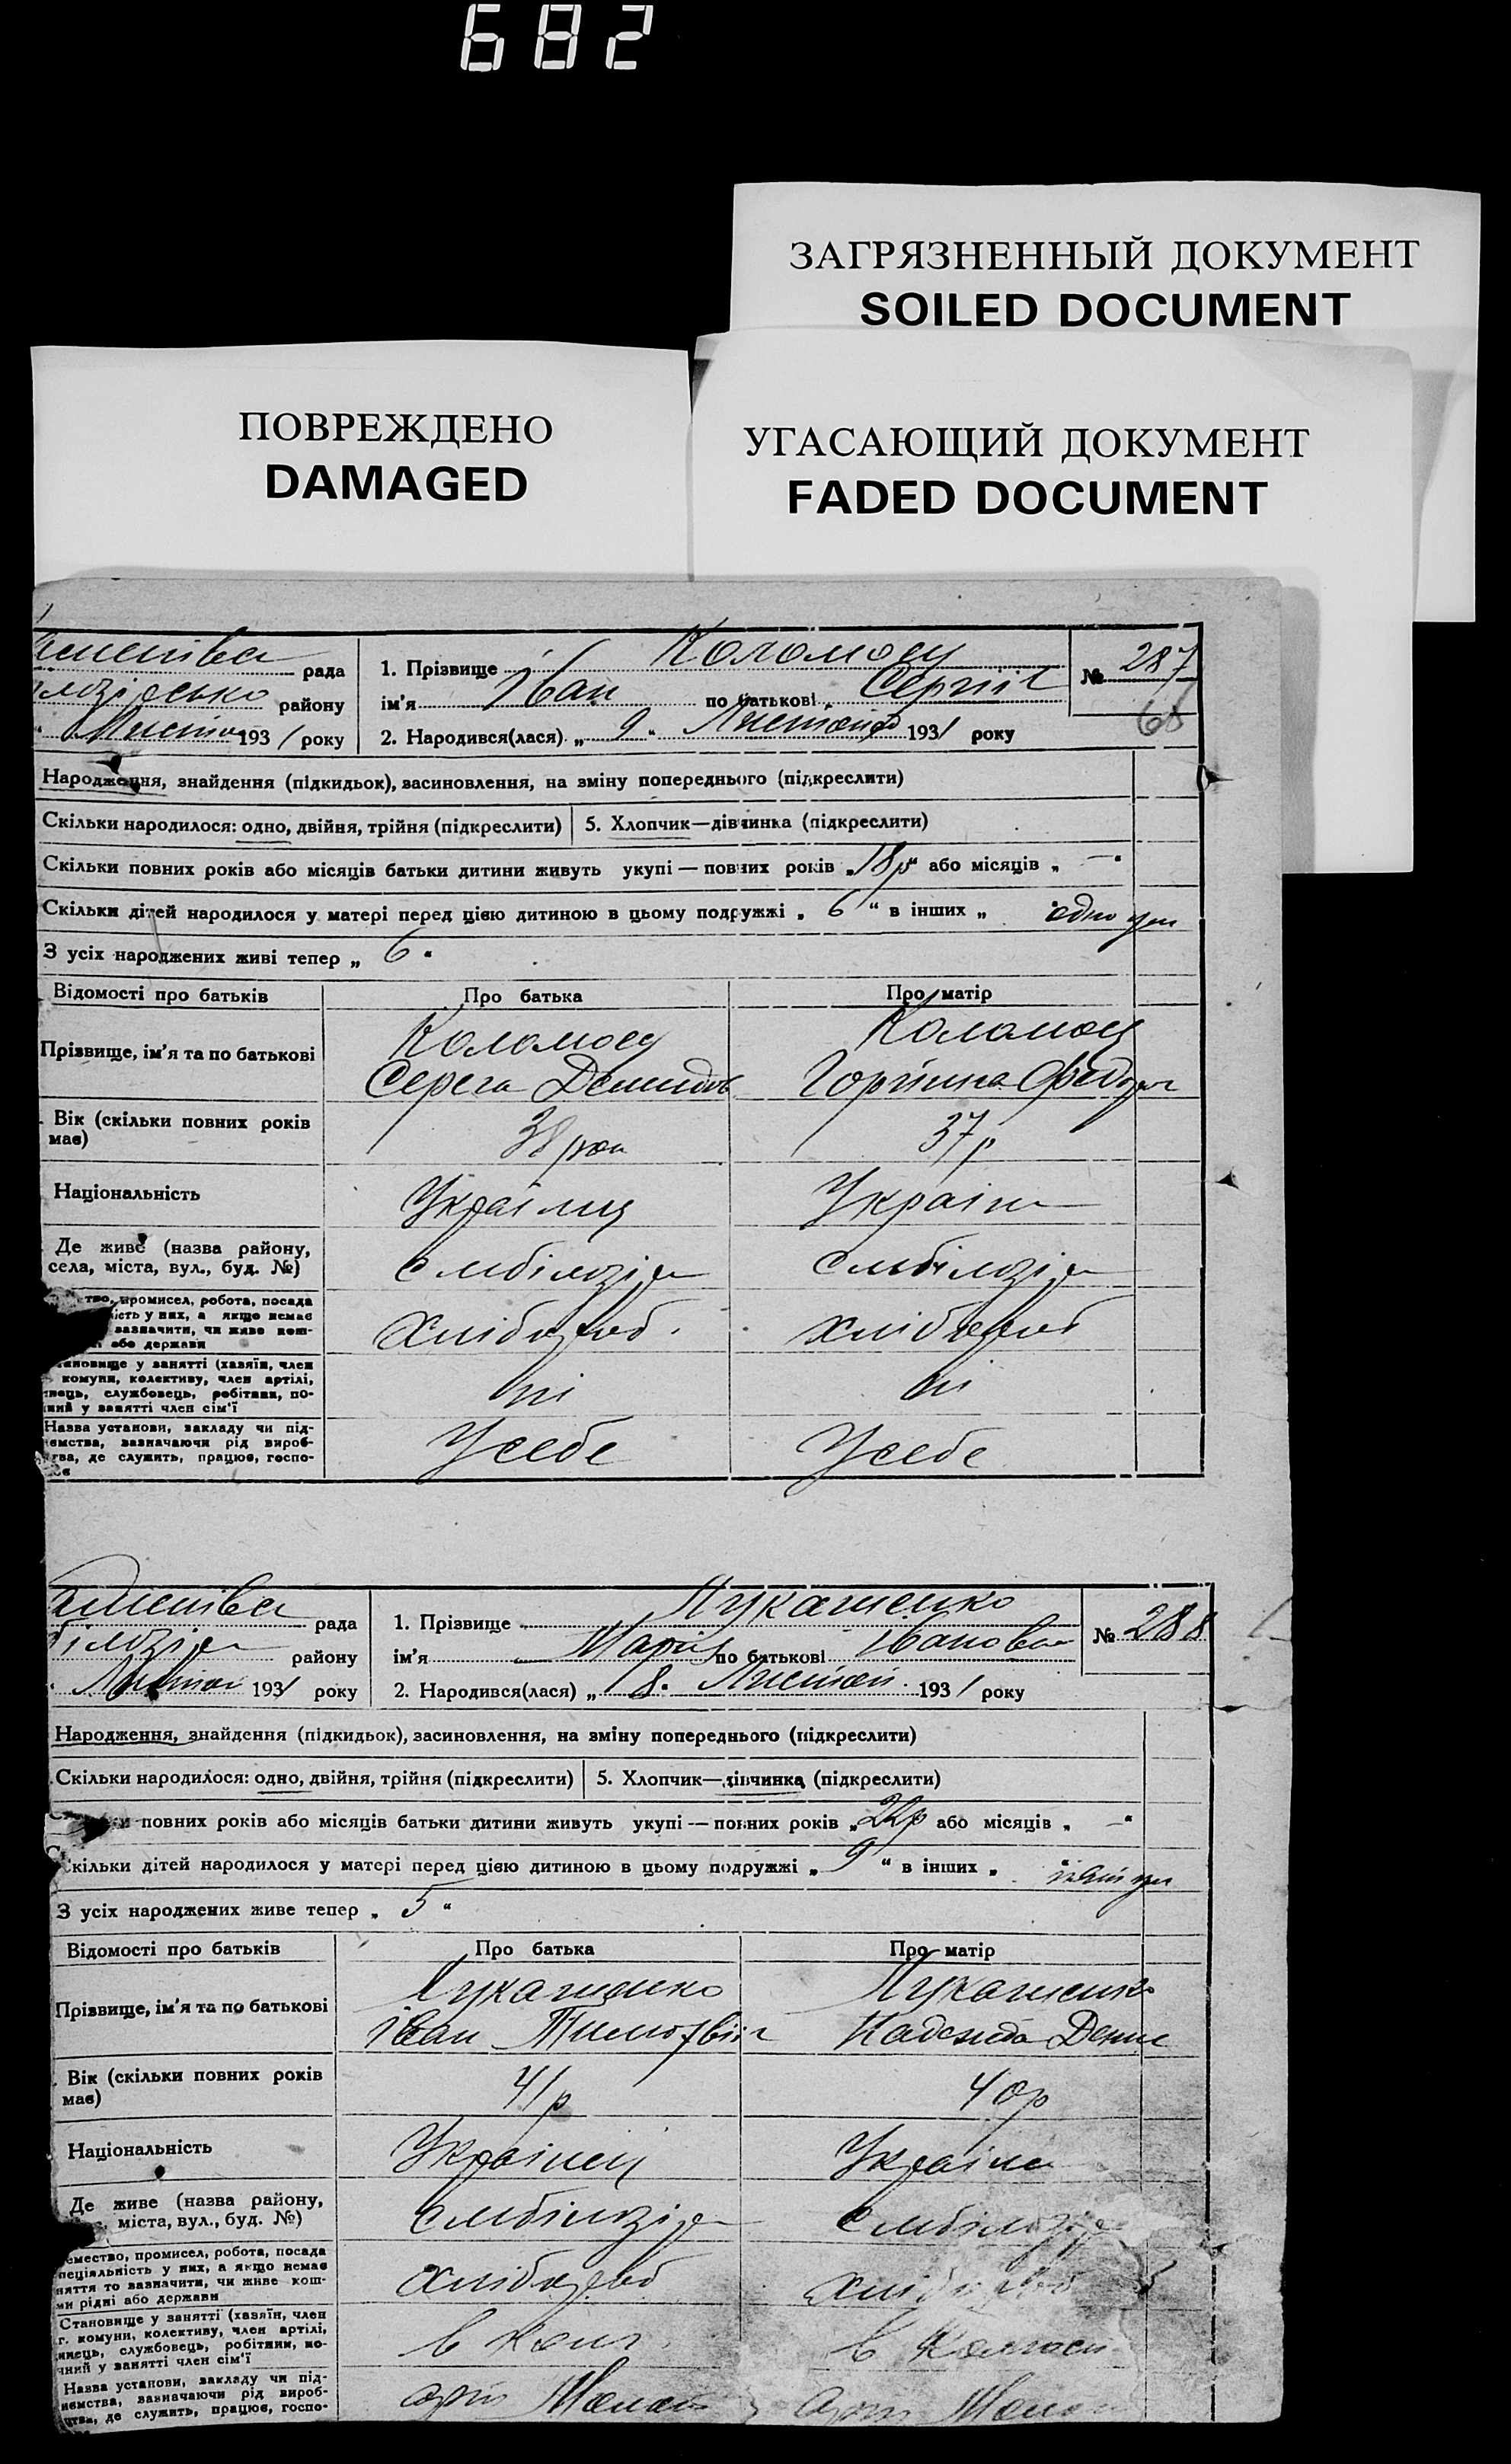 682
ЗАГРЯЗНЕННЫЙ ДОКУМЕНТ
SOILED DOCUMENT
ПОВРЕЖДЕНО
DAMAGED
УГАСАЮЩИЙ ДОКУМЕНТ
FADED DOCUMENT
рада
району
193 1 року
1. Прізвище Коломоец
ім'я Іван по батькові Сергіїв
2. Народився(лася) „ 9 “ 193 1 року
№ 287
68
Народження, знайдення (підкидьок), засиновлення, на зміну попереднього (підкреслити)
Скільки народилося: одно, двійня, трійня (підкреслити) 5. Хлопчик—дівчинка (підкреслити)
Скільки повних років або місяців батьки дитини живуть укупі — повних років „ 18р “ або місяців „ — “
Скільки дітей народилося у матері перед цією дитиною в цьому подружжі „ 6 “ в інших „
З усіх народжених живі тепер „ 6 “
Відомості про батьків Про батька Про матір
Прізвище, ім'я та по батькові
Коломоец
Серега Демидов
Коломоец
Вік (скільки повних років
має)
38 рок
37 р
Національність
Українец
Україн
Де живе (назва району,
села, міста, вул., буд. №)
смбілозір
смбілозір
тво, промисел, робота, посада
ість у них, а якщо немає
зазначити, чи живе кош-
або держави
хлібороб
хлібороб
тановище у занятті (хазяїн, член
комуни, колективу, член артілі,
нець, службовець, робітник, по-
чний у занятті член сім'ї
ні
ні
Назва установи, закладу чи під-
ємства, зазначаючи рід вироб-
тва, де служить, працює, госпо-
У себе
У себе
рада
району
193 1 року
1. Прізвище Лукашенко
ім'я Марія по батькові Івановна
2. Народився(лася) „ 8. 193 1 року
№ 288
Народження, знайдення (підкидьок), засиновлення, на зміну попереднього (підкреслити)
Скільки народилося: одно, двійня, трійня (підкреслити) 5. Хлопчик—дівчинка (підкреслити)
повних років або місяців батьки дитини живуть укупі — повних років „ 22р або місяців „ — “
Скільки дітей народилося у матері перед цією дитиною в цьому подружжі „ 9 “ в інших „
З усіх народжених живе тепер „ 5 “
Відомості про батьків Про батька Про матір
Прізвище, ім'я та по батькові
Лукашенко
Іван
Лукашенко
Надежда Денис
Вік (скільки повних років
має)
41р
40р
Національність
Українец
Україн
Де живе (назва району,
міста, вул., буд. №)
смбілозір
смбілозір
емество, промисел, робота, посада
пеціяльність у них, а якщо немає
няття то зазначити, чи живе кош-
ми рідні або держави
хлібороб
хлібороб
Становище у занятті (хазяїн, член
г. комуни, колективу, член артілі,
нець, службовець, робітник, по-
чний у занятті член сім'ї
Назва установи, закладу чи під-
иємства, зазначаючи рід вироб-
цтва, де служить, працює, госпо-